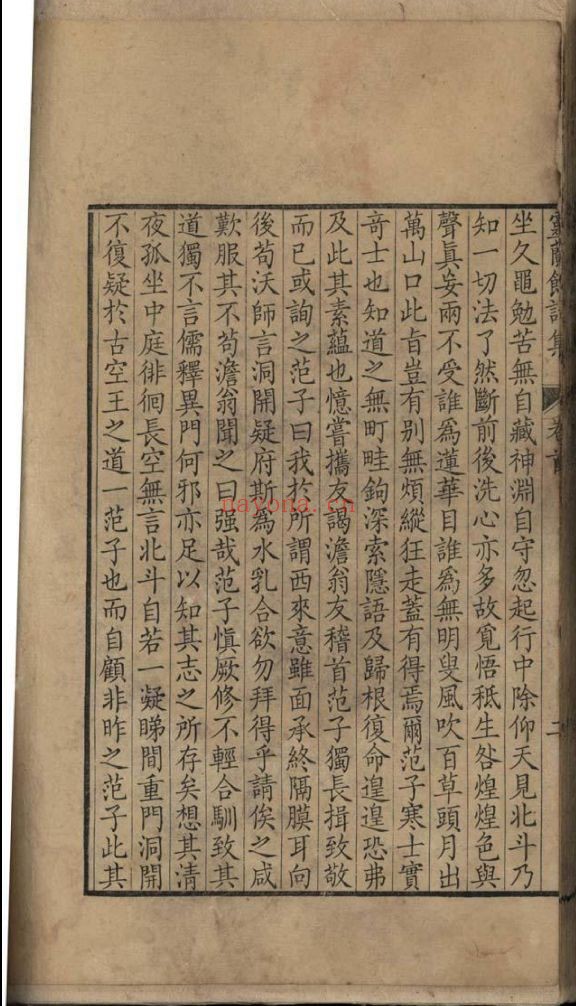 坐久黽勉苦無自藏神淵自守忽起行中除仰天見北斗乃
知一切法了然斷前後洗心亦多故覓悟秪生咎煌煌色與
聲眞妄兩不受誰爲蓮華目誰爲無明叟風吹百草頭月出
萬山口此旨豈有别無煩縱狂走蓋有得焉爾范子寒士實
竒士也知道之無町畦鉤深索隱語及歸根復命遑遑恐弗
及此其素蘊也憶嘗攜友謁澹翁友稽首范子獨長揖致敬
而已或詢之范子曰我於所謂西來意雖面承終隔膜耳向
後苟沃師言洞開疑府斯爲水乳合欲勿拜得乎請俟之咸
歎服其不苟澹翁聞之曰强哉范子愼厥修不輕合馴致其
道獨不言儒釋異門何邪亦足以知其志之所存矣想其清
夜孤坐中庭徘徊長空無言北斗自若一凝睇間重門洞開
不復疑於古空王之道一范子也而自顧非昨之范子此其
nayona.cn